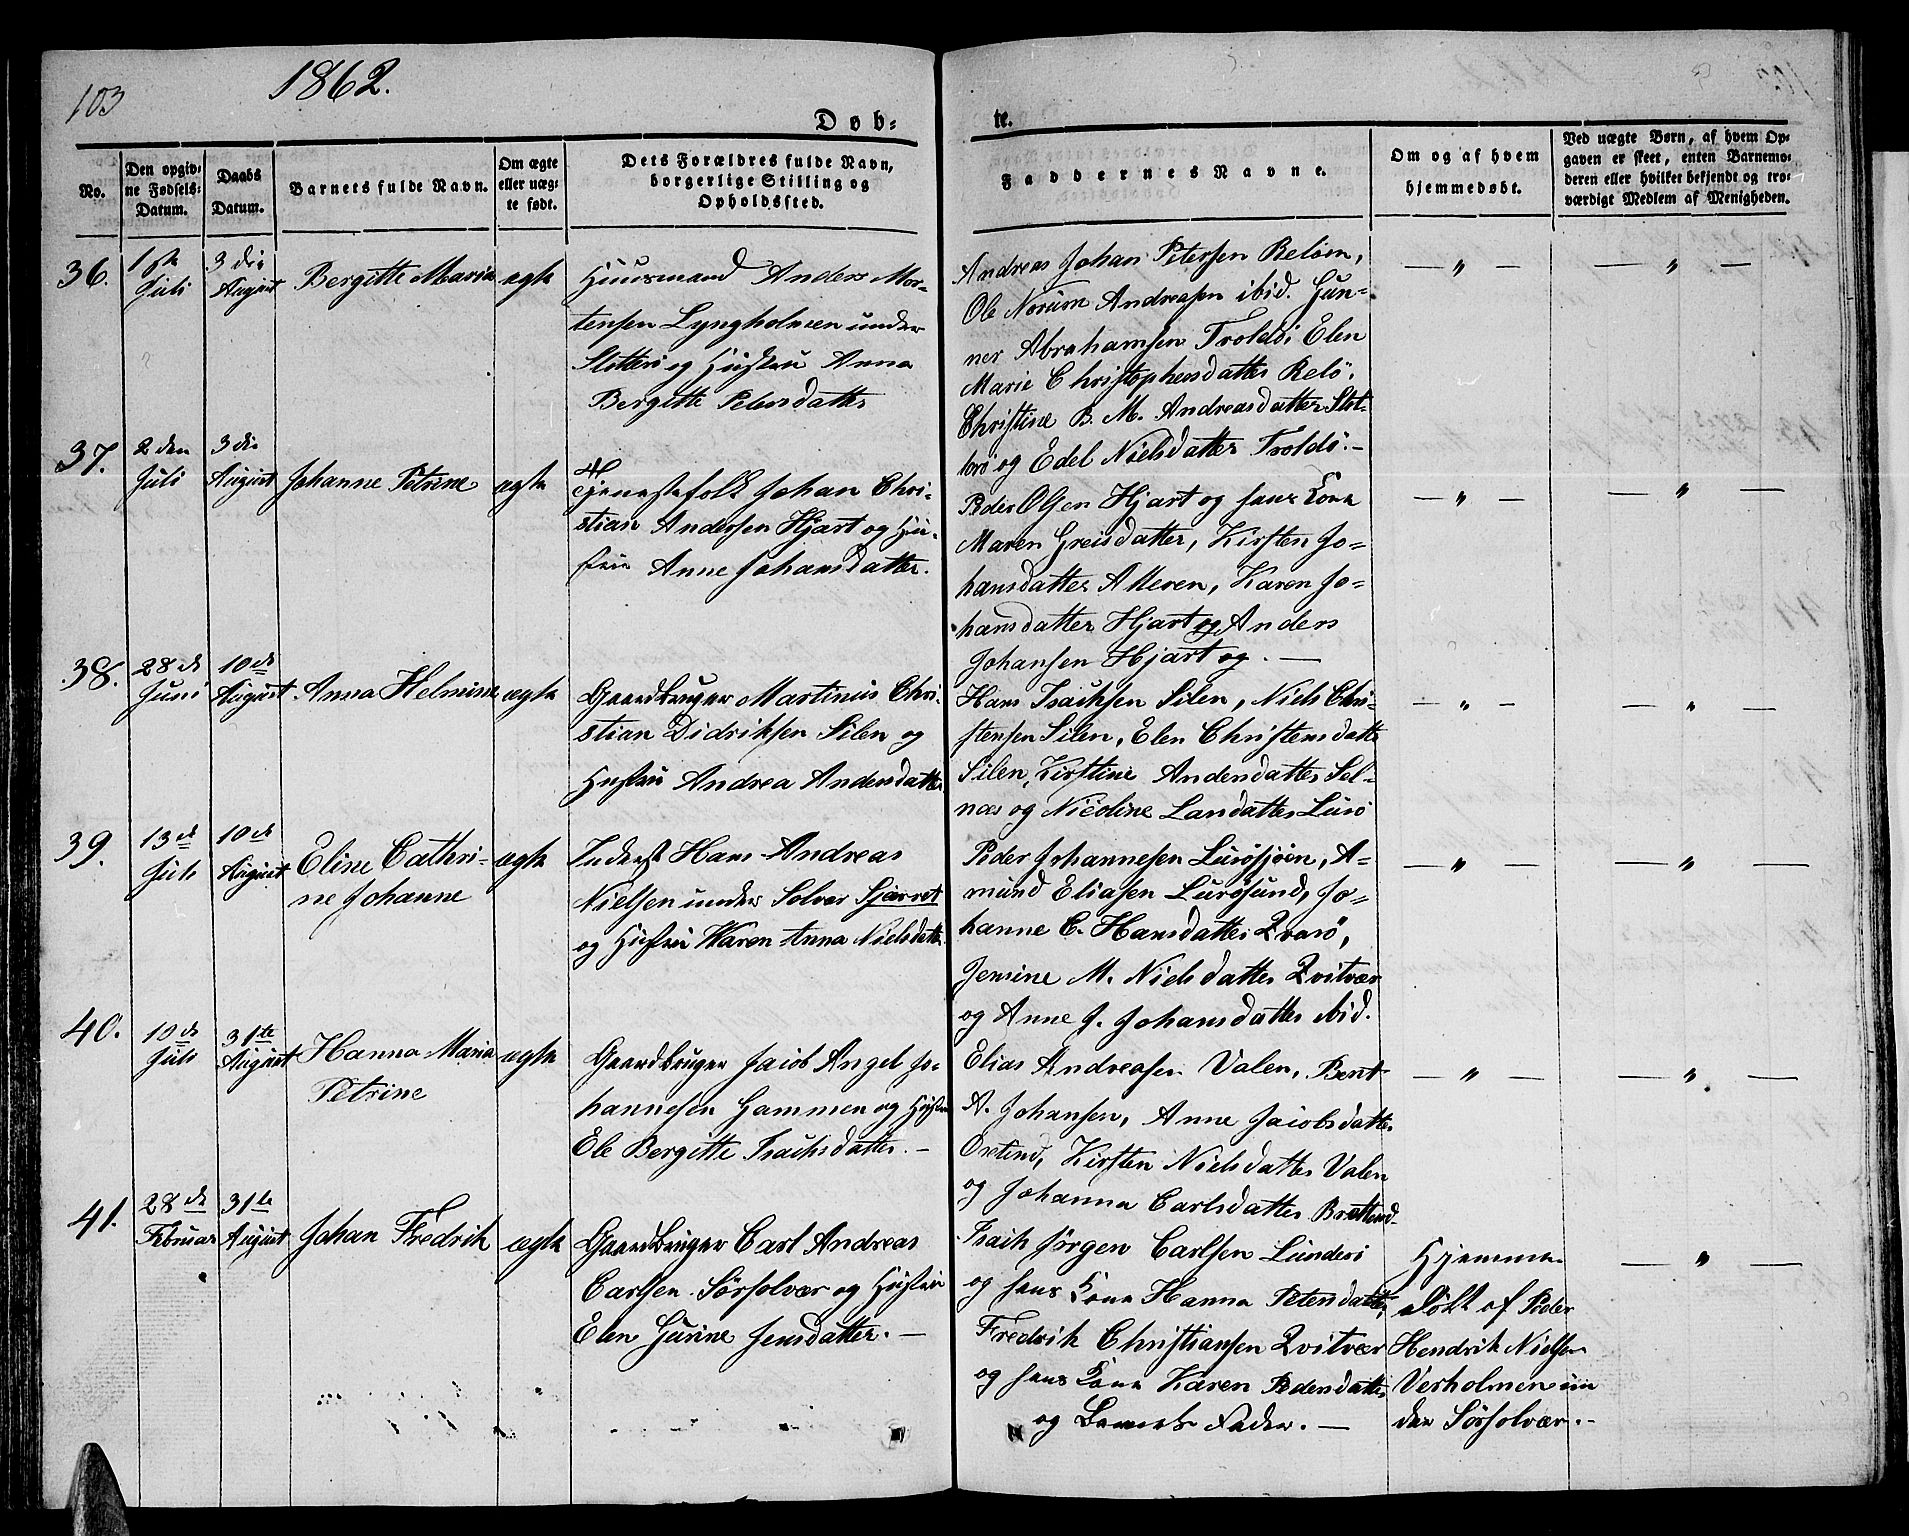 103
1862.
Døb-
te.
No.
Den opgiv-
ne Fødsels-
Datum.
Daabs
Datum.
Barnets fulde Navn.
Om ægte
eller uæg-
te født.
Dets Forældres fulde Navn,
borgerlige Stilling og
Opholdssted.
Faddernes Navne.
Om og af hvem
hjemmedøbt.
Ved uægte Børn, af hvem Op-
gaven er skeet, enten Barnemo-
deren eller hvilket bekjendt og tro-
værdigt Medlem af Menigheden.
36.
1ste
Juli
3die
August
Bergitte Maria
ægte
Huusmand Anders Mor-
tensen Lyngholmen under
Slotterö og Hustru Anna
Bergitte Petersdatter
Andreas Johan Petersen Relöen,
Ole Norum Andreasen ibid. Gun-
ner Abrahamsen Troldö Elen
Marie Christophersdatter Relö,
Christine B. M. Andreasdatter Slot-
terö og Edel Nielsdatter Troldö. -
— " —
— " —
37.
2den
Juli
3die
August
Johanne Petrine
ægte
Tjenestefolk Johan Chri-
stian Andersen Hjart og Hu-
stru Anne Johansdatter.
Peder Olsen Hjart og hans Kone
Maren Greisdatter, Kirsten Jo-
hansdatter Alteren, Karen Jo-
hansdatter Hjart og Anders
Johansen Hjart og. —
— " —
— " —
38.
28de
Juni
10de
August
Anna Helmine
ægte
Gaardbruger Martinus Chri-
stian Didriksen Silen og
Hustru Andrea Andersdatter
Hans Isachsen Silen, Niels Chri-
stensen Silen, Elen Christensdatter
Silen, Kirstine Andersdatter Sel-
næs og Nicoline Larsdatter Lurö
— " —
— " —
39.
13de
Juli
10de
August
Eline Cathri-
ne Johanne
ægte
Inderst Hans Andreas
Nielsen under Solvær Sjærvet
og Hustru Karen Anna Nielsdatter
Peder Johannesen Lurösjöen, A-
mund Eliasen Lurösund, Jo-
hanne C. Hansdatter Qvarö,
Jensine M. Nielsdatter Qvitvær
og Anne J. Johansdatter ibid.
— " —
— " —
40.
10de
Juli
31te
August
Hanna Maria
Petrine
ægte
Gaardbruger Jacob Angel Jo-
hannesen Gammen og Hustru
Ele Bergitte Isachsdatter. —
Elias Andreasen Valen, Bent
A. Johansen, Anne Jacobsdatter
Kirsten Nielsdatter Valen
og Johanna Carlsdatter
— " —
— " —
41.
28de
Februar
31te
August
Johan Fredrik
ægte
Gaardbruger Carl Andreas
Carlsen Sörsolvær og Hustru
Elen Gurine Jensdatter. —
Isach Jörgen Carlsen Lunderö
og hans Kone Hanna Petersdatter,
Fredrik Christiansen Qvitvær
og hans Kone Karen Pedersdatter
og Barnets Fader. —
Hjemme
döbt af Peder
Hendrik Nielsen
Værholmen un
der Sörsolvær. -
— " —